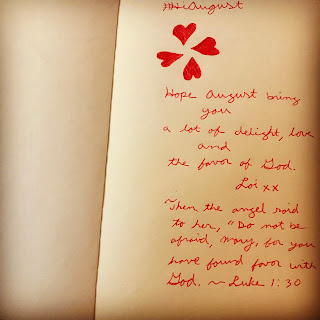 #HiAugust
Hope August bring
you
a lot of delight, love
and
the favor of God.
Loi xx
Then the angel said
to her, "Do not be
afraid, Mary, for you
have found favor with
God. ~ Luke 1:30